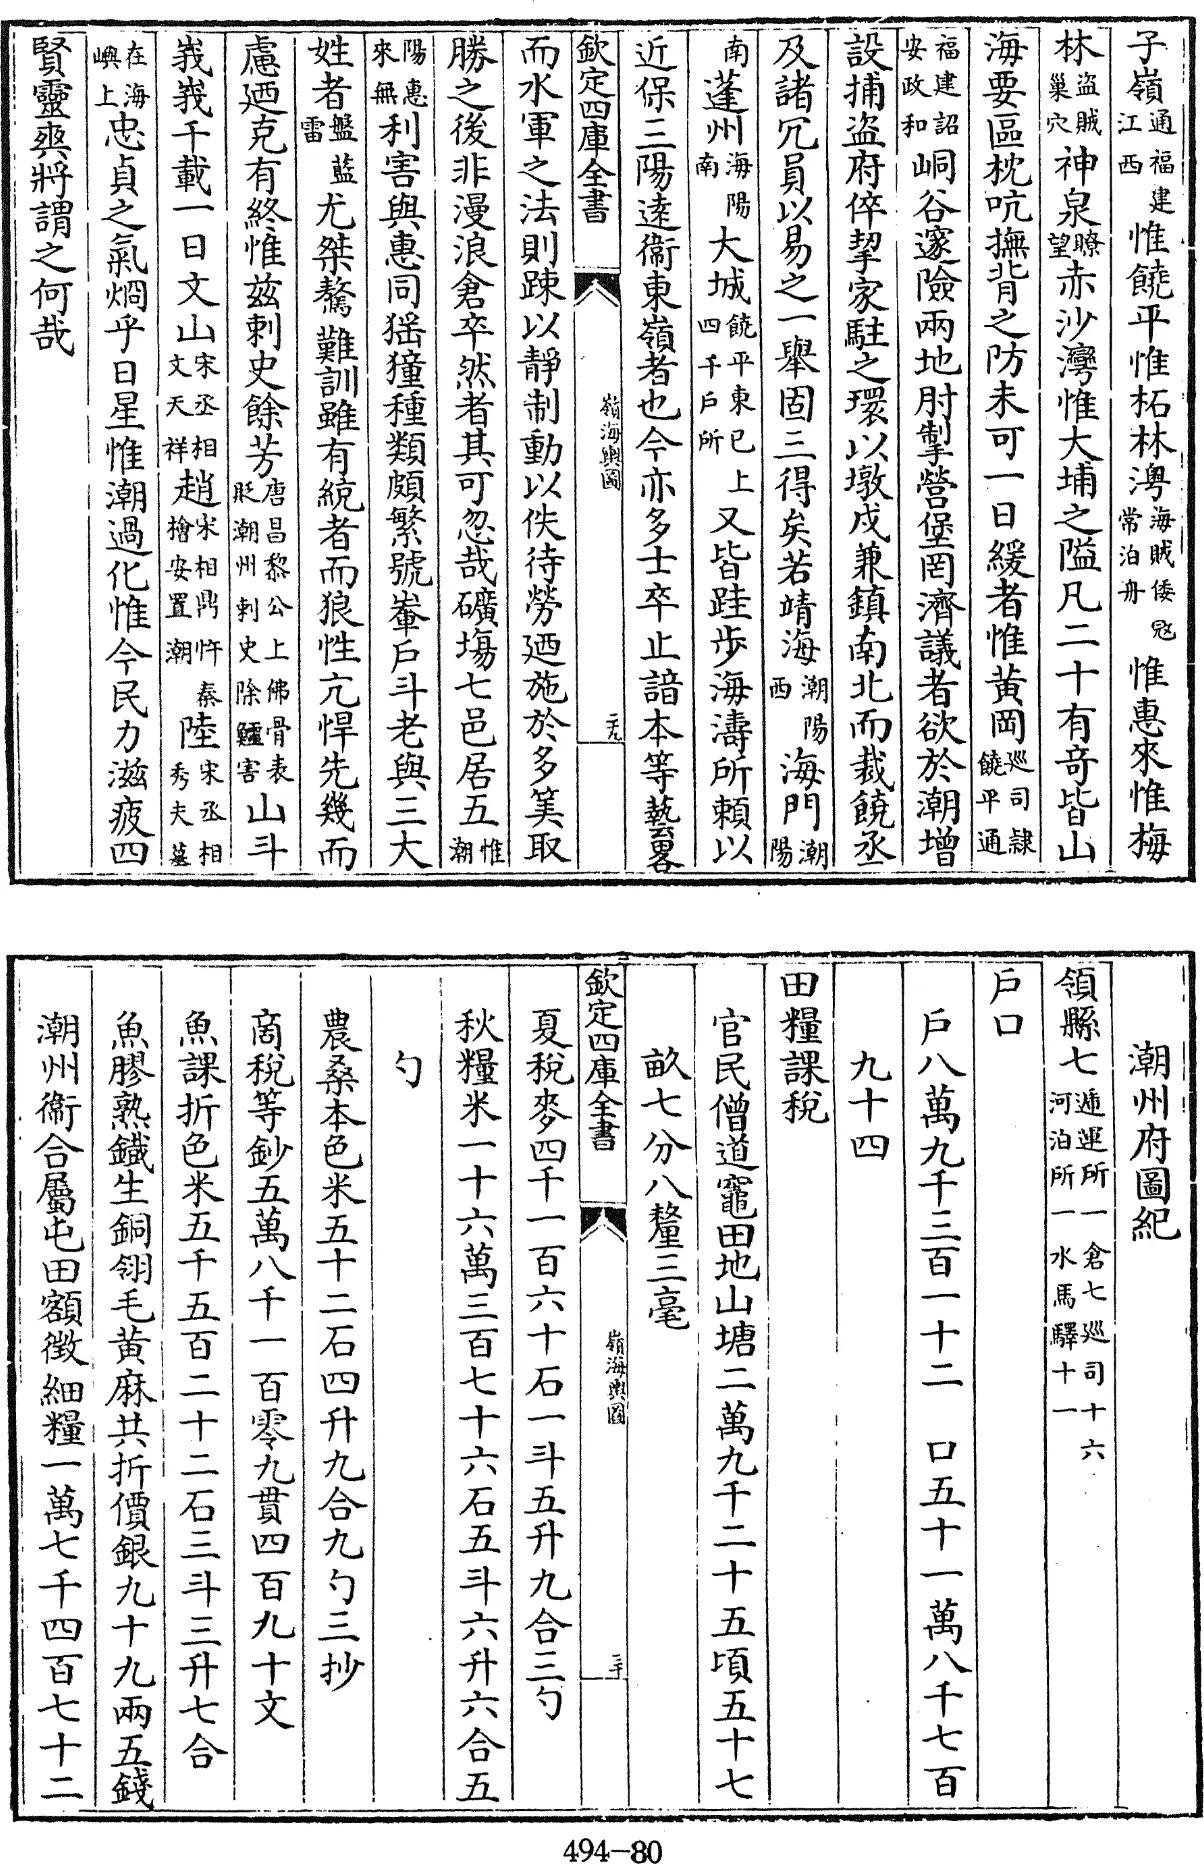 子嶺通福建江西惟饒平惟柘林澚海賊倭寇常泊舟惟惠來惟梅
林盜賊巢穴神泉瞭望赤沙灣惟大埔之隘凡二十有奇皆山
海要區枕吭撫背之防未可一日緩者惟黃岡巡司隷饒平通
福建詔安政和峒谷邃險兩地肘掣營堡罔濟議者欲於潮增
設捕盜府倅挈家駐之環以墩戍兼鎮南北而裁饒丞
及諸冗員以易之一舉固三得矣若靖海潮陽西海門潮陽
南蓬州海陽南大城饒平東已上四千戶所又皆跬步海濤所賴以
近保三陽逺衞東嶺者也今亦多士卒止諳本等藝畧
欽定四庫全書
嶺海輿圖
二十九
而水軍之法則踈以靜制動以佚待勞廼施於多筭取
勝之後非漫浪倉卒然者其可忽哉礦塲七邑居五惟潮
陽惠來無利害與惠同猺獞種類頗繁號輋戶斗老與三大
姓者盤藍雷尤桀驁難訓雖有綂者而狼性亢悍先幾而
慮廼克有終惟兹刺史餘芳唐昌黎公上佛骨表貶潮州刺史除鱷害山斗
峩峩千載一日文山宋丞相文天祥趙宋相鼎忤秦檜安置潮陸宋丞相秀夫墓
在海嶼上忠貞之氣烱乎日星惟潮過化惟今民力滋疲四
賢靈爽將謂之何哉
潮州府圖紀
領縣七遞運所一倉七巡司十六河泊所一水馬驛十一
戶口
戶八萬九千三百一十二 口五十一萬八千七百
九十四
田糧課稅
官民僧道竈田地山塘二萬九千二十五頃五十七
畝七分八釐三毫
欽定四庫全書
嶺海輿圖
三十
夏稅麥四千一百六十石一斗五升九合三勺
秋糧米一十六萬三百七十六石五斗六升六合五
勺
農桑本色米五十二石四升九合九勺三抄
商稅等鈔五萬八千一百零九貫四百九十文
魚課折色米五千五百二十二石三斗三升七合
魚膠熟鐵生銅翎毛黃麻共折價銀九十九兩五錢
潮州衞合屬屯田額徵細糧一萬七千四百七十二
494-80